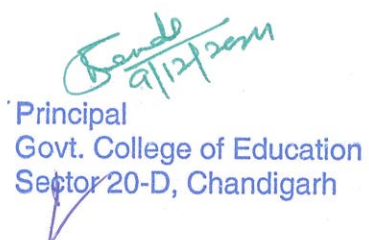 9/12/2024
Principal
Govt. College of Education
Sector 20-D, Chandigarh